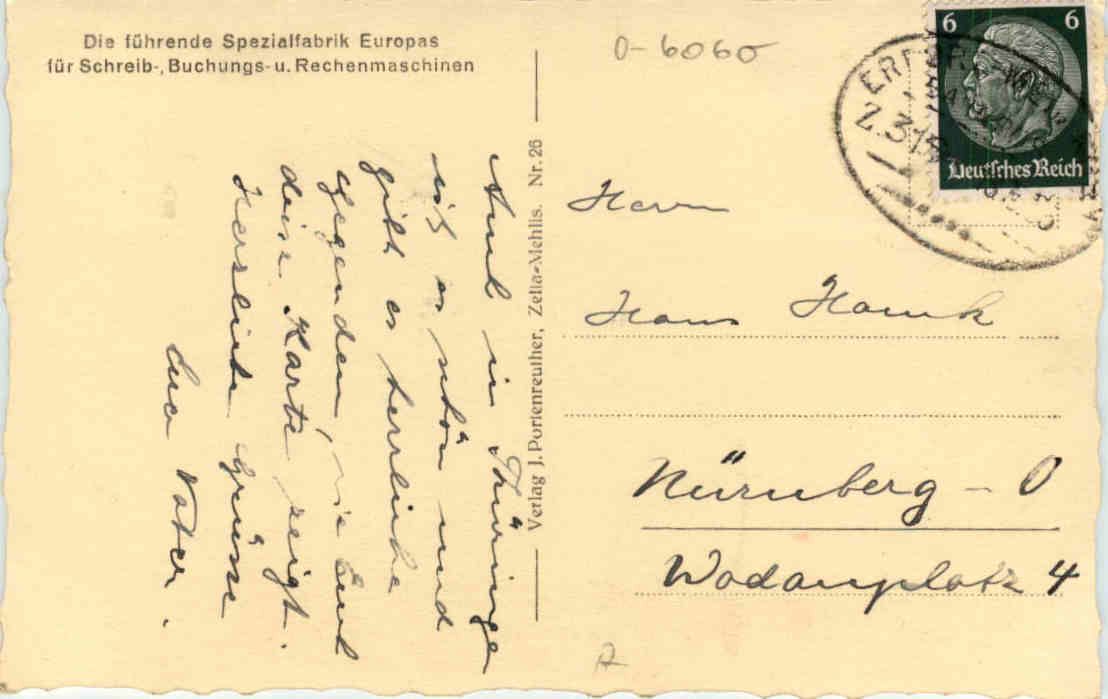 Die führende Spezialfabrik Europas
für Schreib-, Buchungs- u. Rechenmaschinen
0-6060
6 6
Deutsches Reich
ERFURT
Z. 315
Auch in Thüringen
ist es schön und
gibt es herrliche
Gegenden, wie Euch
diese Karte zeigt.
Herzliche Grüsse
Euer Vater.
Verlag J. Portenreuther, Zella-Mehlis. Nr. 26
Herrn
Hans
Nürnberg - O
Wodanplatz 4